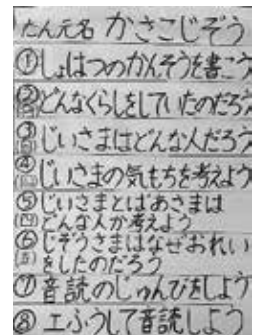 たん元名 かさこじぞう
①しょはつのかんそうを書こう
②どんなくらしをしていたのだろう
③じいさまはどんな人だろう
④じいさまの気もちを考えよう
⑤じいさまとばあさまは
どんな人か考えよう
⑥じぞうさまはなぜおれい
をしたのだろう
⑦音読のじゅんびをしよう
⑧エふうして音読しよう